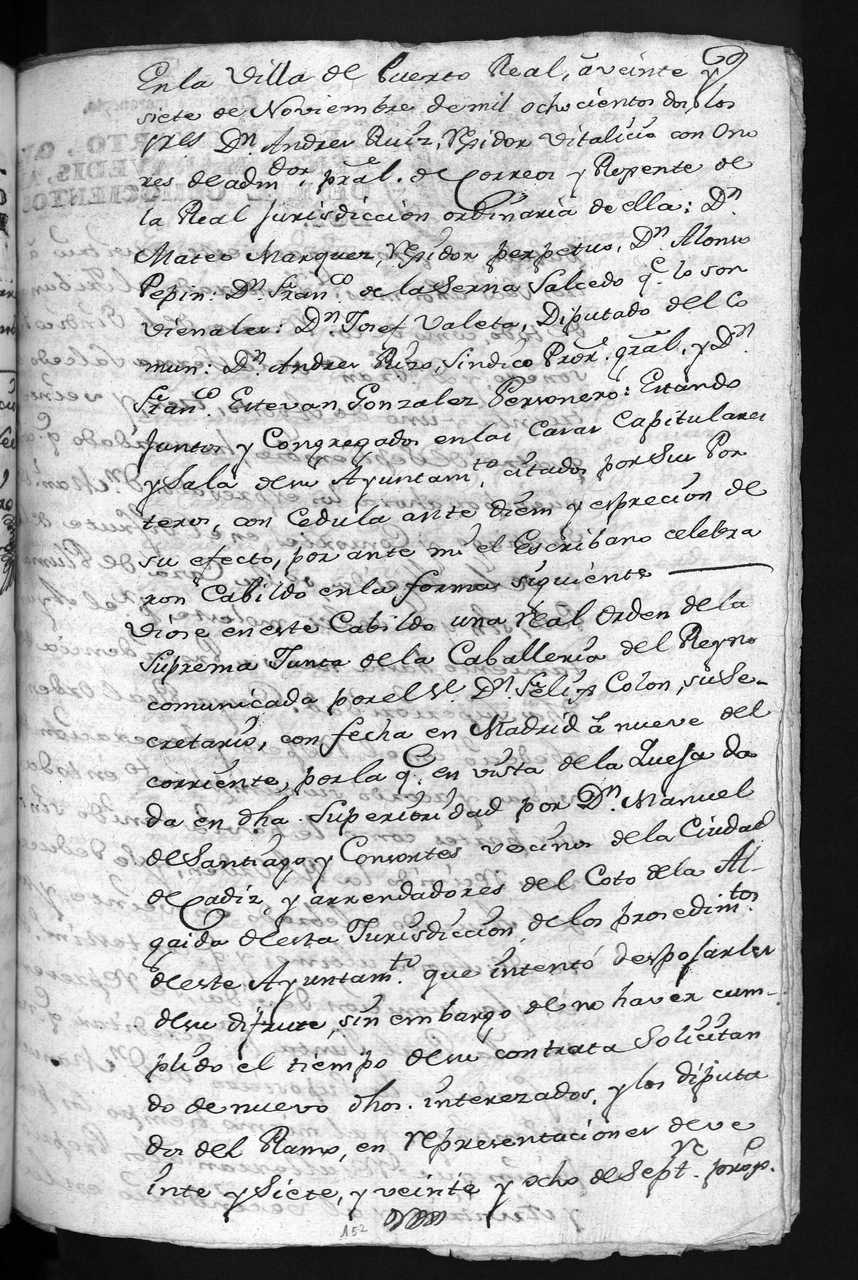 En la Villa de Puerto Real, a veinte y
siete de Noviembre de mil ochocientos dos, los
Sres Dn. Andres Ruiz, Rexidor Vitalicio con Ono
res de admdor. pral. de Correos y Rexente de
la Real Jurisdiccion ordinaria de ella: Dn.
Mateo Marquez, Rexidor perpetuo, Dn. Alonso
Pepin: Dn. Franco. de la Serna Salcedo qe. lo son
Vienales: Dn. Josef Valeta, Diputado del Co
mun: Dn. Andres Rizo, Sindico Pror. gral. y Dn.
Franco. Estevan Gonzalez Personero: Estando
Juntos y Congregados en las Casas Capitulares
y Sala de su Ayuntamto. citados por sus Por
teros, con Cedula ante diem y esprecion de
su efecto, por ante mi el Escribano celebra
ron Cabildo en la forma siguiente
Viose en este Cabildo una Real Orden de la
Suprema Junta de la Caballeria del Reyno
comunicada por el Sr. Dn. Felix Colon, su Se-
cretario, con fecha en Madrid a nueve del
corriente, por la qe. en vista de la Queja da
da en dha. Superioridad por Dn. Manuel
de Santiago y Consortes vecinos de la Ciudad
de Cadiz, y arrendadores del Coto de la Al-
gaida de esta Jurisdiccion, de los prosedimtos.
de este Ayuntamto. que intentó desposarles
de su difrute, sin embargo de no haver cum-
plido el tiempo de su contrata Solicitan
do de nuevo dhos. interezados, y los diputa
dos del Ramo, en representaciones de ve
inte y Siete, y veinte y ocho de Septre. proxo.
152